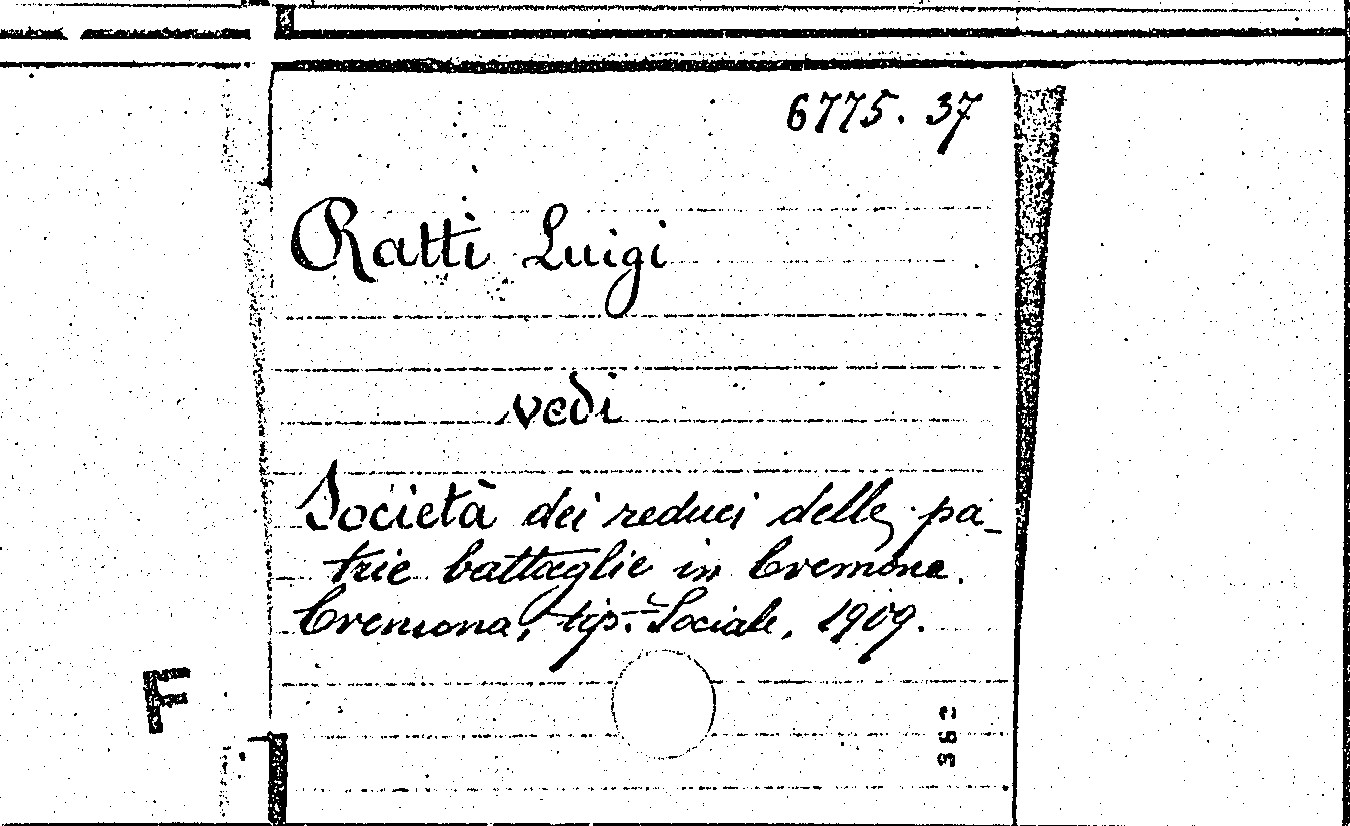 6775. 37
Ratti Luigi
vedi
Società dei reduci delle pa-
trie battaglie in Cremona.
Cremona, tip. Sociale, 1909.
F
362